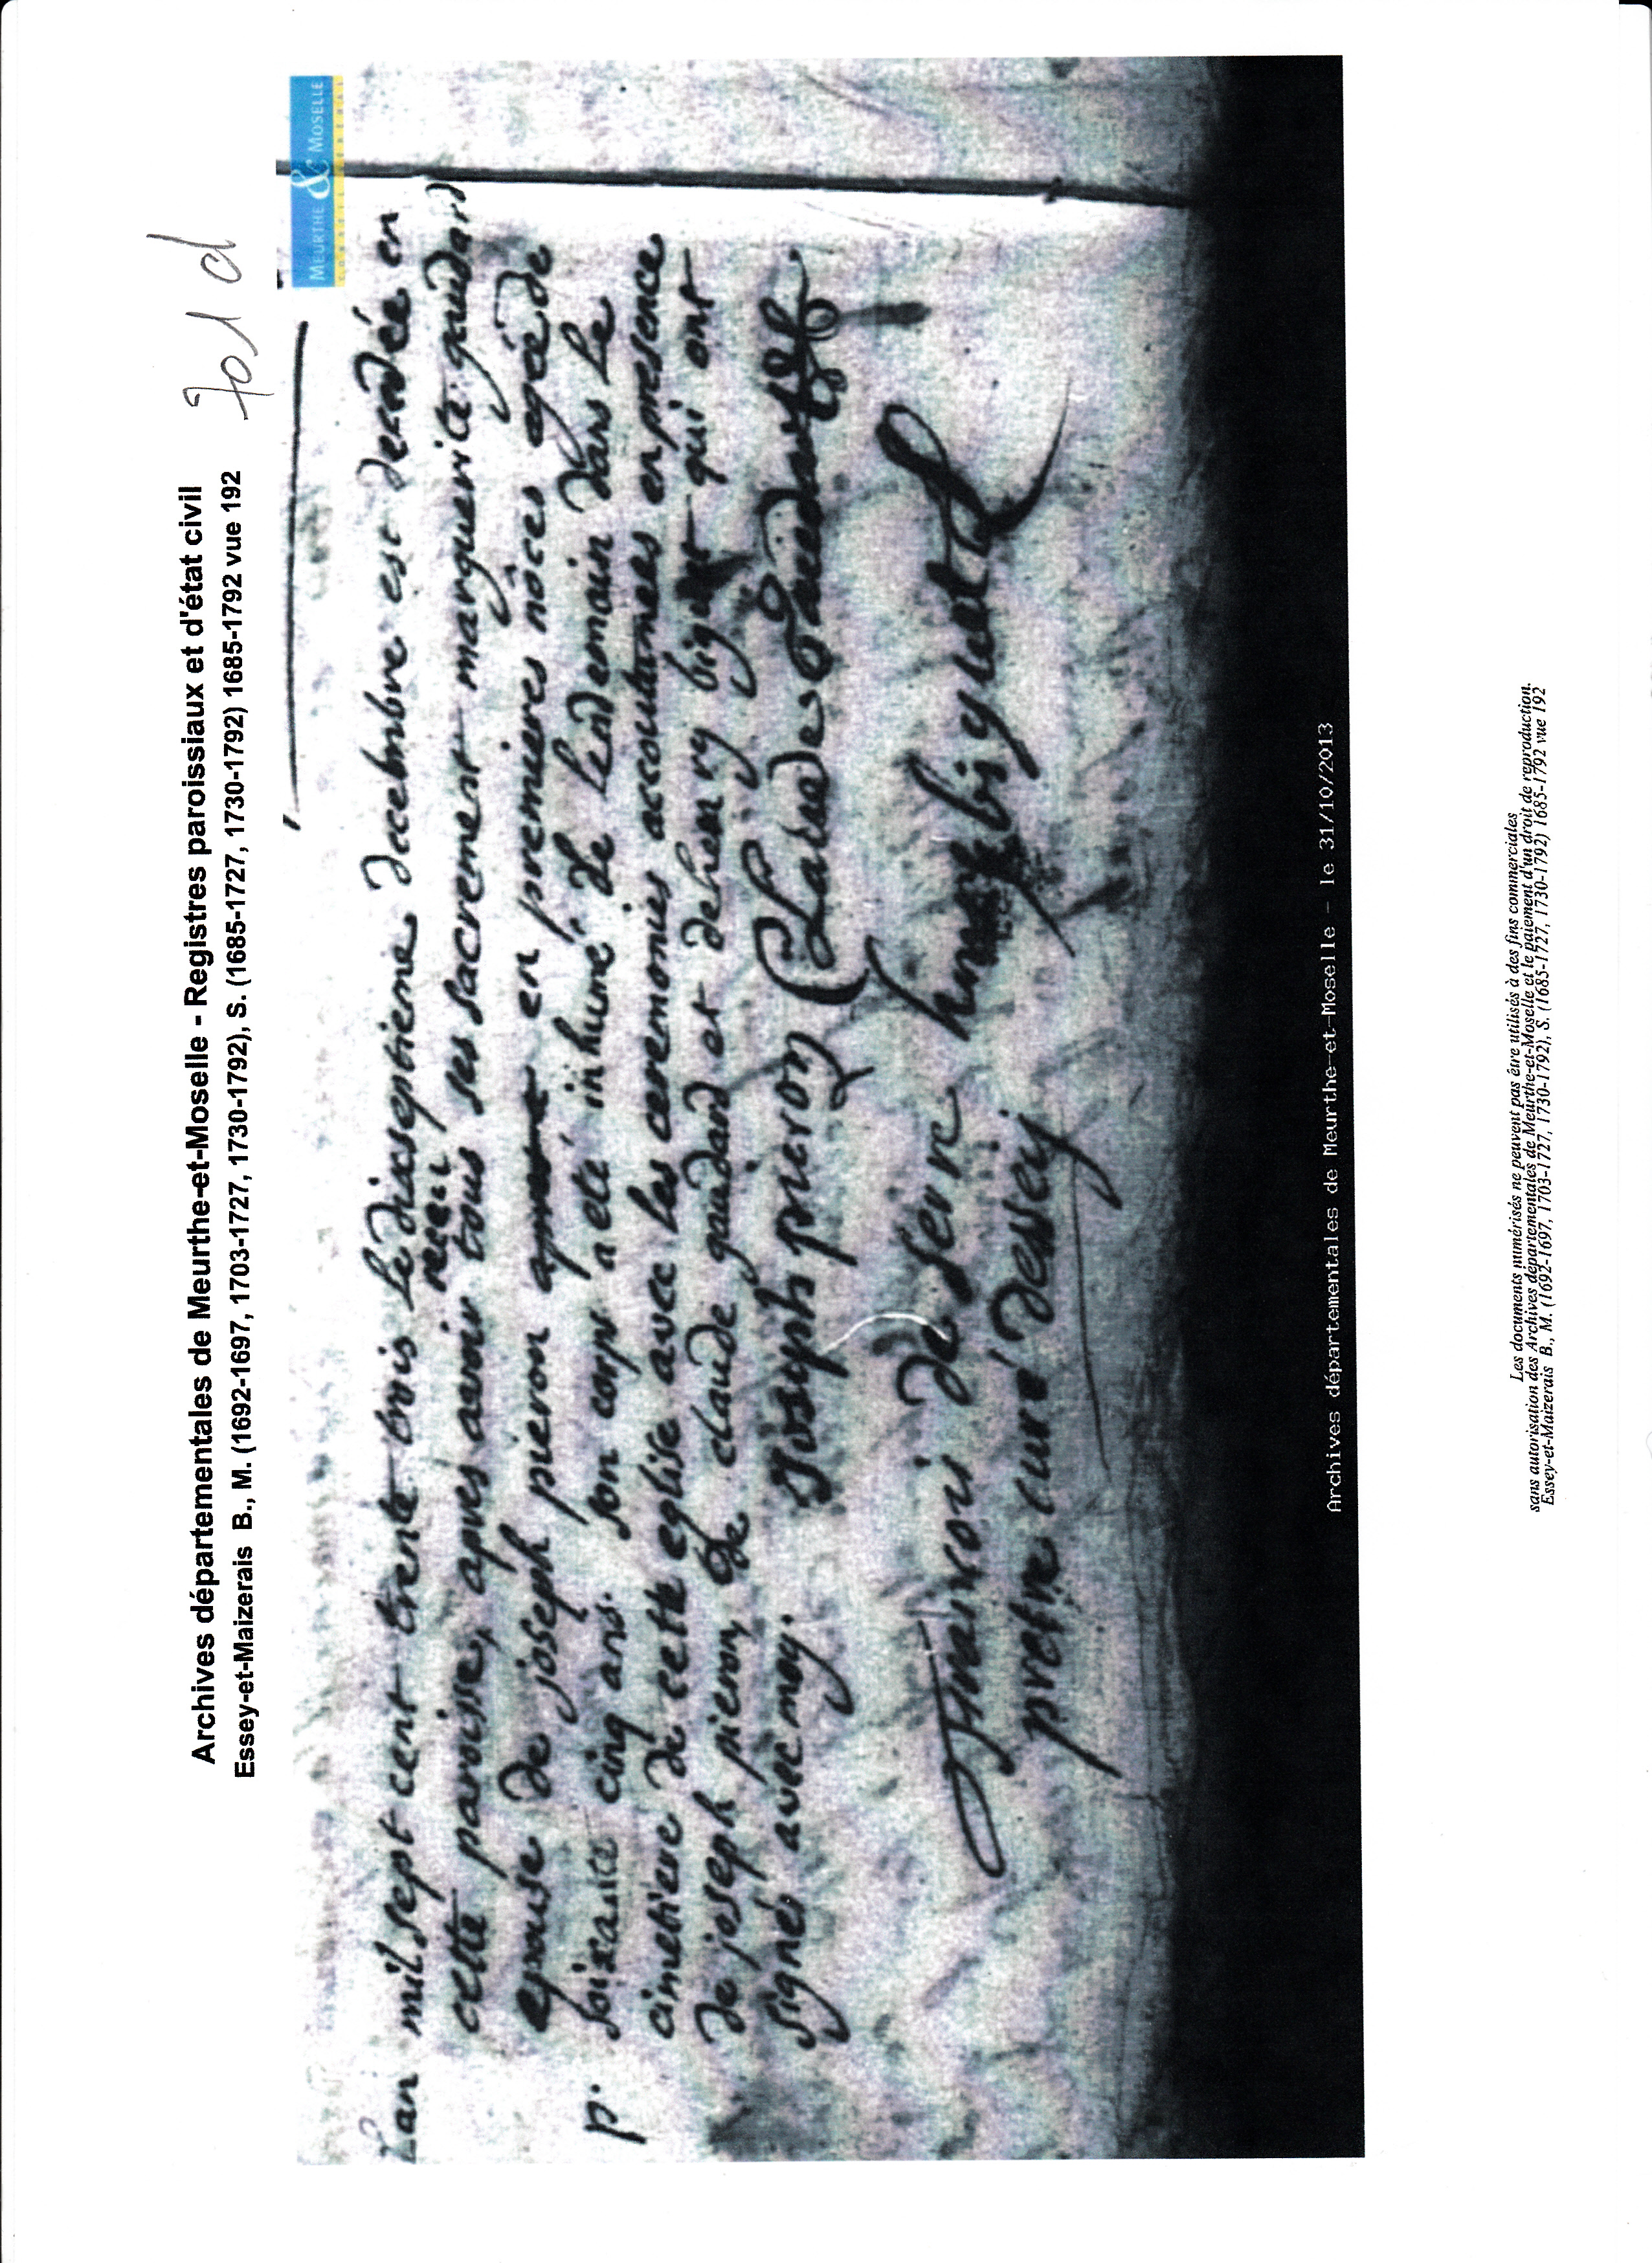 Archives départementales de Meurthe-et-Moselle - Registres paroissiaux et d'état civil
Essey-et-Maizerais B., M. (1692-1697, 1703-1727, 1730-1792), S. (1685-1727, 1730-1792) 1685-1792 vue 192
701 d
MEURTHE & MOSELLE
Lan mil sept cent trente trois le dixseptieme decembre est decedée en
receu
cette paroisse, apres avoir tous ses sacrement marguerite gaudard
epouse de joseph pieron en premieres nôces agéé de
p. soixante cinq ans. son corps a eté inhumé le lendemain dans le
cimetiere de cette eglise avec les ceremonies accoutumees en presence
de joseph pieron, de claude gaudard et de henry bigeot qui ont
signéz avec moy. Joseph pieron Claude Gaudard
françois de serre henry bigeot
pretre curé dessey
Archives départementales de Meurthe-et-Moselle - le 31/10/2013
Les documents numérisés ne peuvent pas être utilisés à des fins commerciales
sans autorisation des Archives départementales de Meurthe-et-Moselle et le paiement d'un droit de reproduction.
Essey-et-Maizerais B., M. (1692-1697, 1703-1727, 1730-1792), S. (1685-1727, 1730-1792) 1685-1792 vue 192